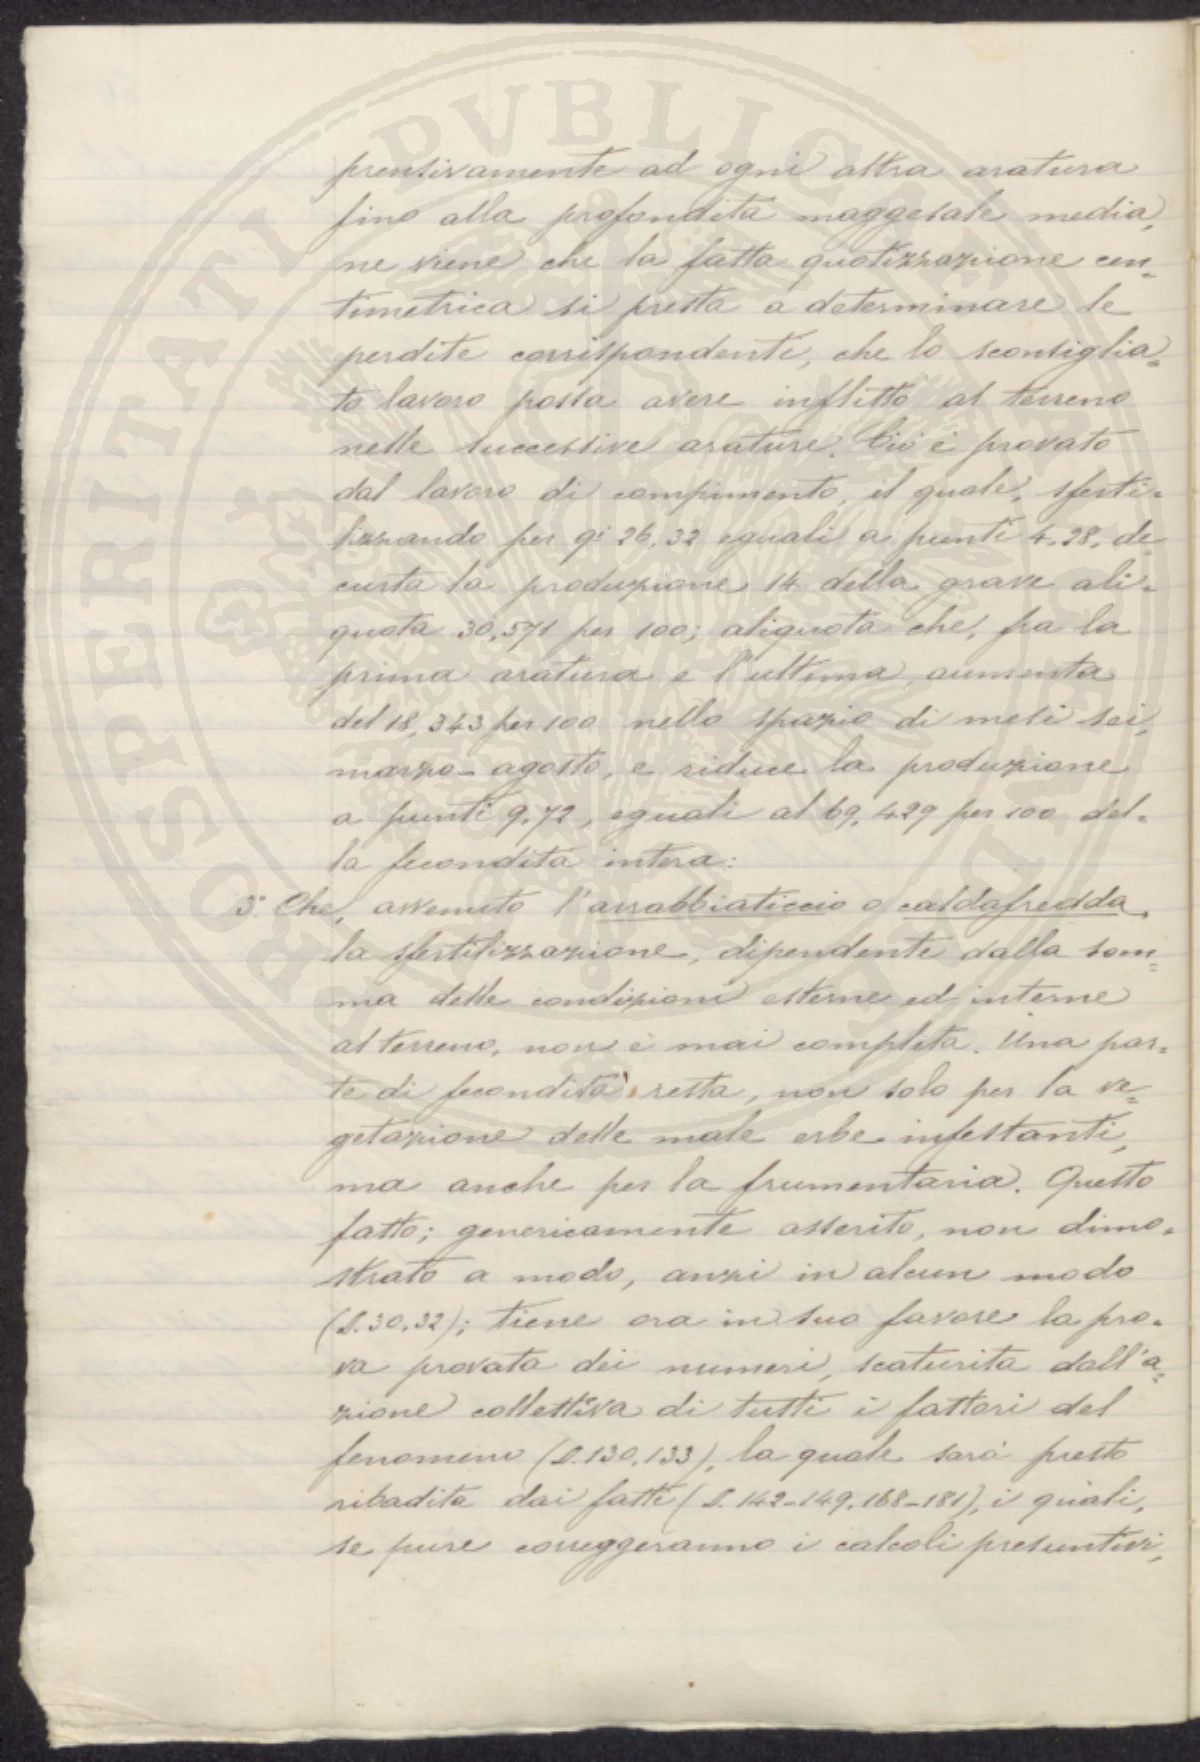 prensivamente ad ogni altra aratura
fino alla profondità maggesale media,
ne viene che la fatta quotizzazione cen=
timetrica si presta a determinare le
perdite corrispondenti, che lo sconsiglia=
to lavoro possa avere inflitto al terreno
nelle successive arature. Ciò è provato
dal lavoro di compimento, il quale, sferti-
lizzando per qi 26,32 eguali a punti 4,28, de
curta la produzione 14 della grave ali-
quota 30,571 per 100; aliquota che, fra la
prima aratura e l'ultima, aumenta
del 18,343 per 100 nello spazio di mesi sei,
marzo-agosto, e riduce la produzione
a punti 9,72, eguali al 69,429 per 100 del-
la fecondità intera:
3° Che, avvenuto l'arrabbiaticcio o caldafredda,
la sfertilizzazione, dipendente dalla som=
ma delle condizioni esterne ed interne
al terreno, non è mai completa. Una par-
te di fecondità resta, non solo per la ve=
getazione delle male erbe infestanti,
ma anche per la frumentaria. Questo
fatto; genericamente asserito, non dimo-
strato a modo, anzi in alcun modo
(§. 30, 32); tiene ora in suo favore la pro-
va provata dei numeri, scaturita dall'a=
zione collettiva di tutti i fattori del
fenomeno (§. 130, 133), la quale sarà presto
ribadita dai fatti (§. 142-149, 168-181), i quali,
se pure correggeranno i calcoli presuntivi,
PROSPERITATI PVBLICAE